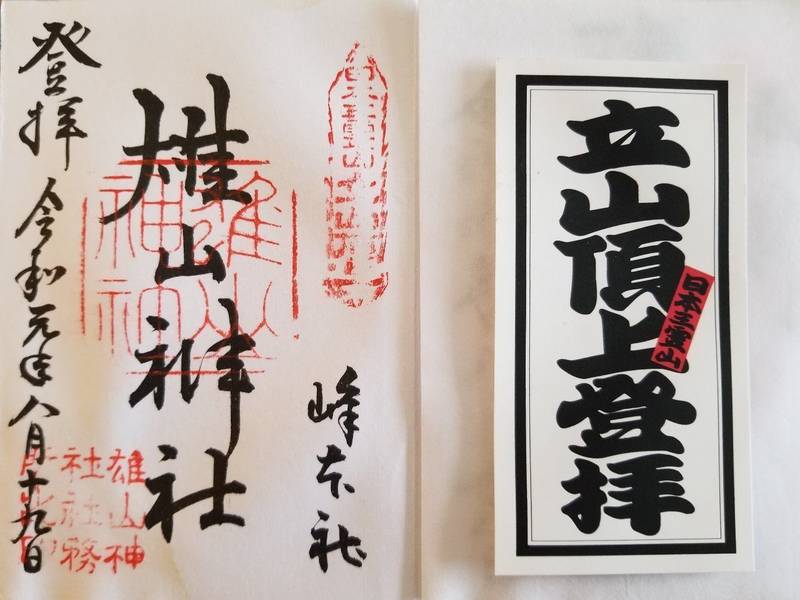 立山頂上登拝
日本三霊山
峰本社
雄山神社
雄山
神社
登拝 令和元年八月十九日
雄山神
社社務